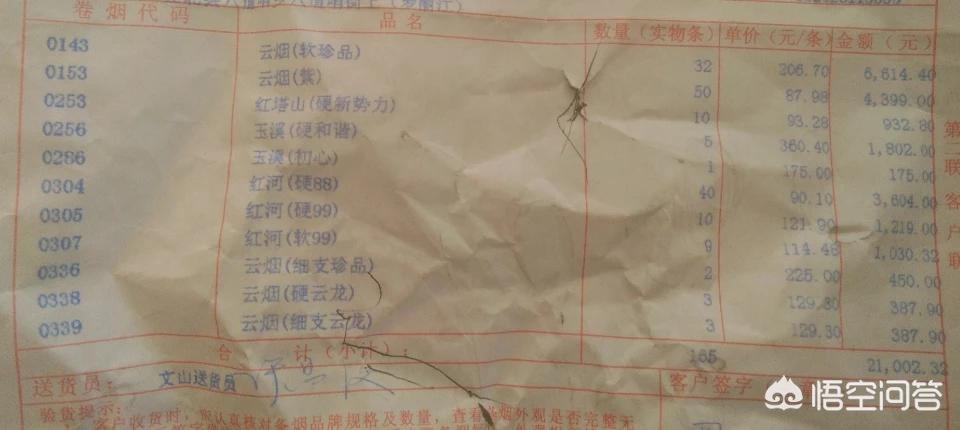 卷烟代码 品名 数量（实物条） 单价（元/条） 金额（元）
0143 云烟(软珍品) 32 206.70 6,614.40
0153 云烟(紫) 50 87.98 4,399.00
0253 红塔山(硬新势力) 10 93.28 932.80
0256 玉溪(硬和谐) 5 360.40 1,802.00
0286 玉溪(初心) 1 175.00 175.00
0304 红河(硬88) 40 90.10 3,604.00
0305 红河(硬99) 10 121.90 1,219.00
0307 红河(软99) 9 114.48 1,030.32
0336 云烟(细支珍品) 2 225.00 450.00
0338 云烟(硬云龙) 3 129.30 387.90
0339 云烟(细支云龙) 3 129.30 387.90
合计（小计）： 165 21,002.32
送货员： 文山送货员 客户签字
验货提示：
客户收货时，请认真核对卷烟品牌规格及数量，查看卷烟外观是否完整无
联客户联
悟空问答